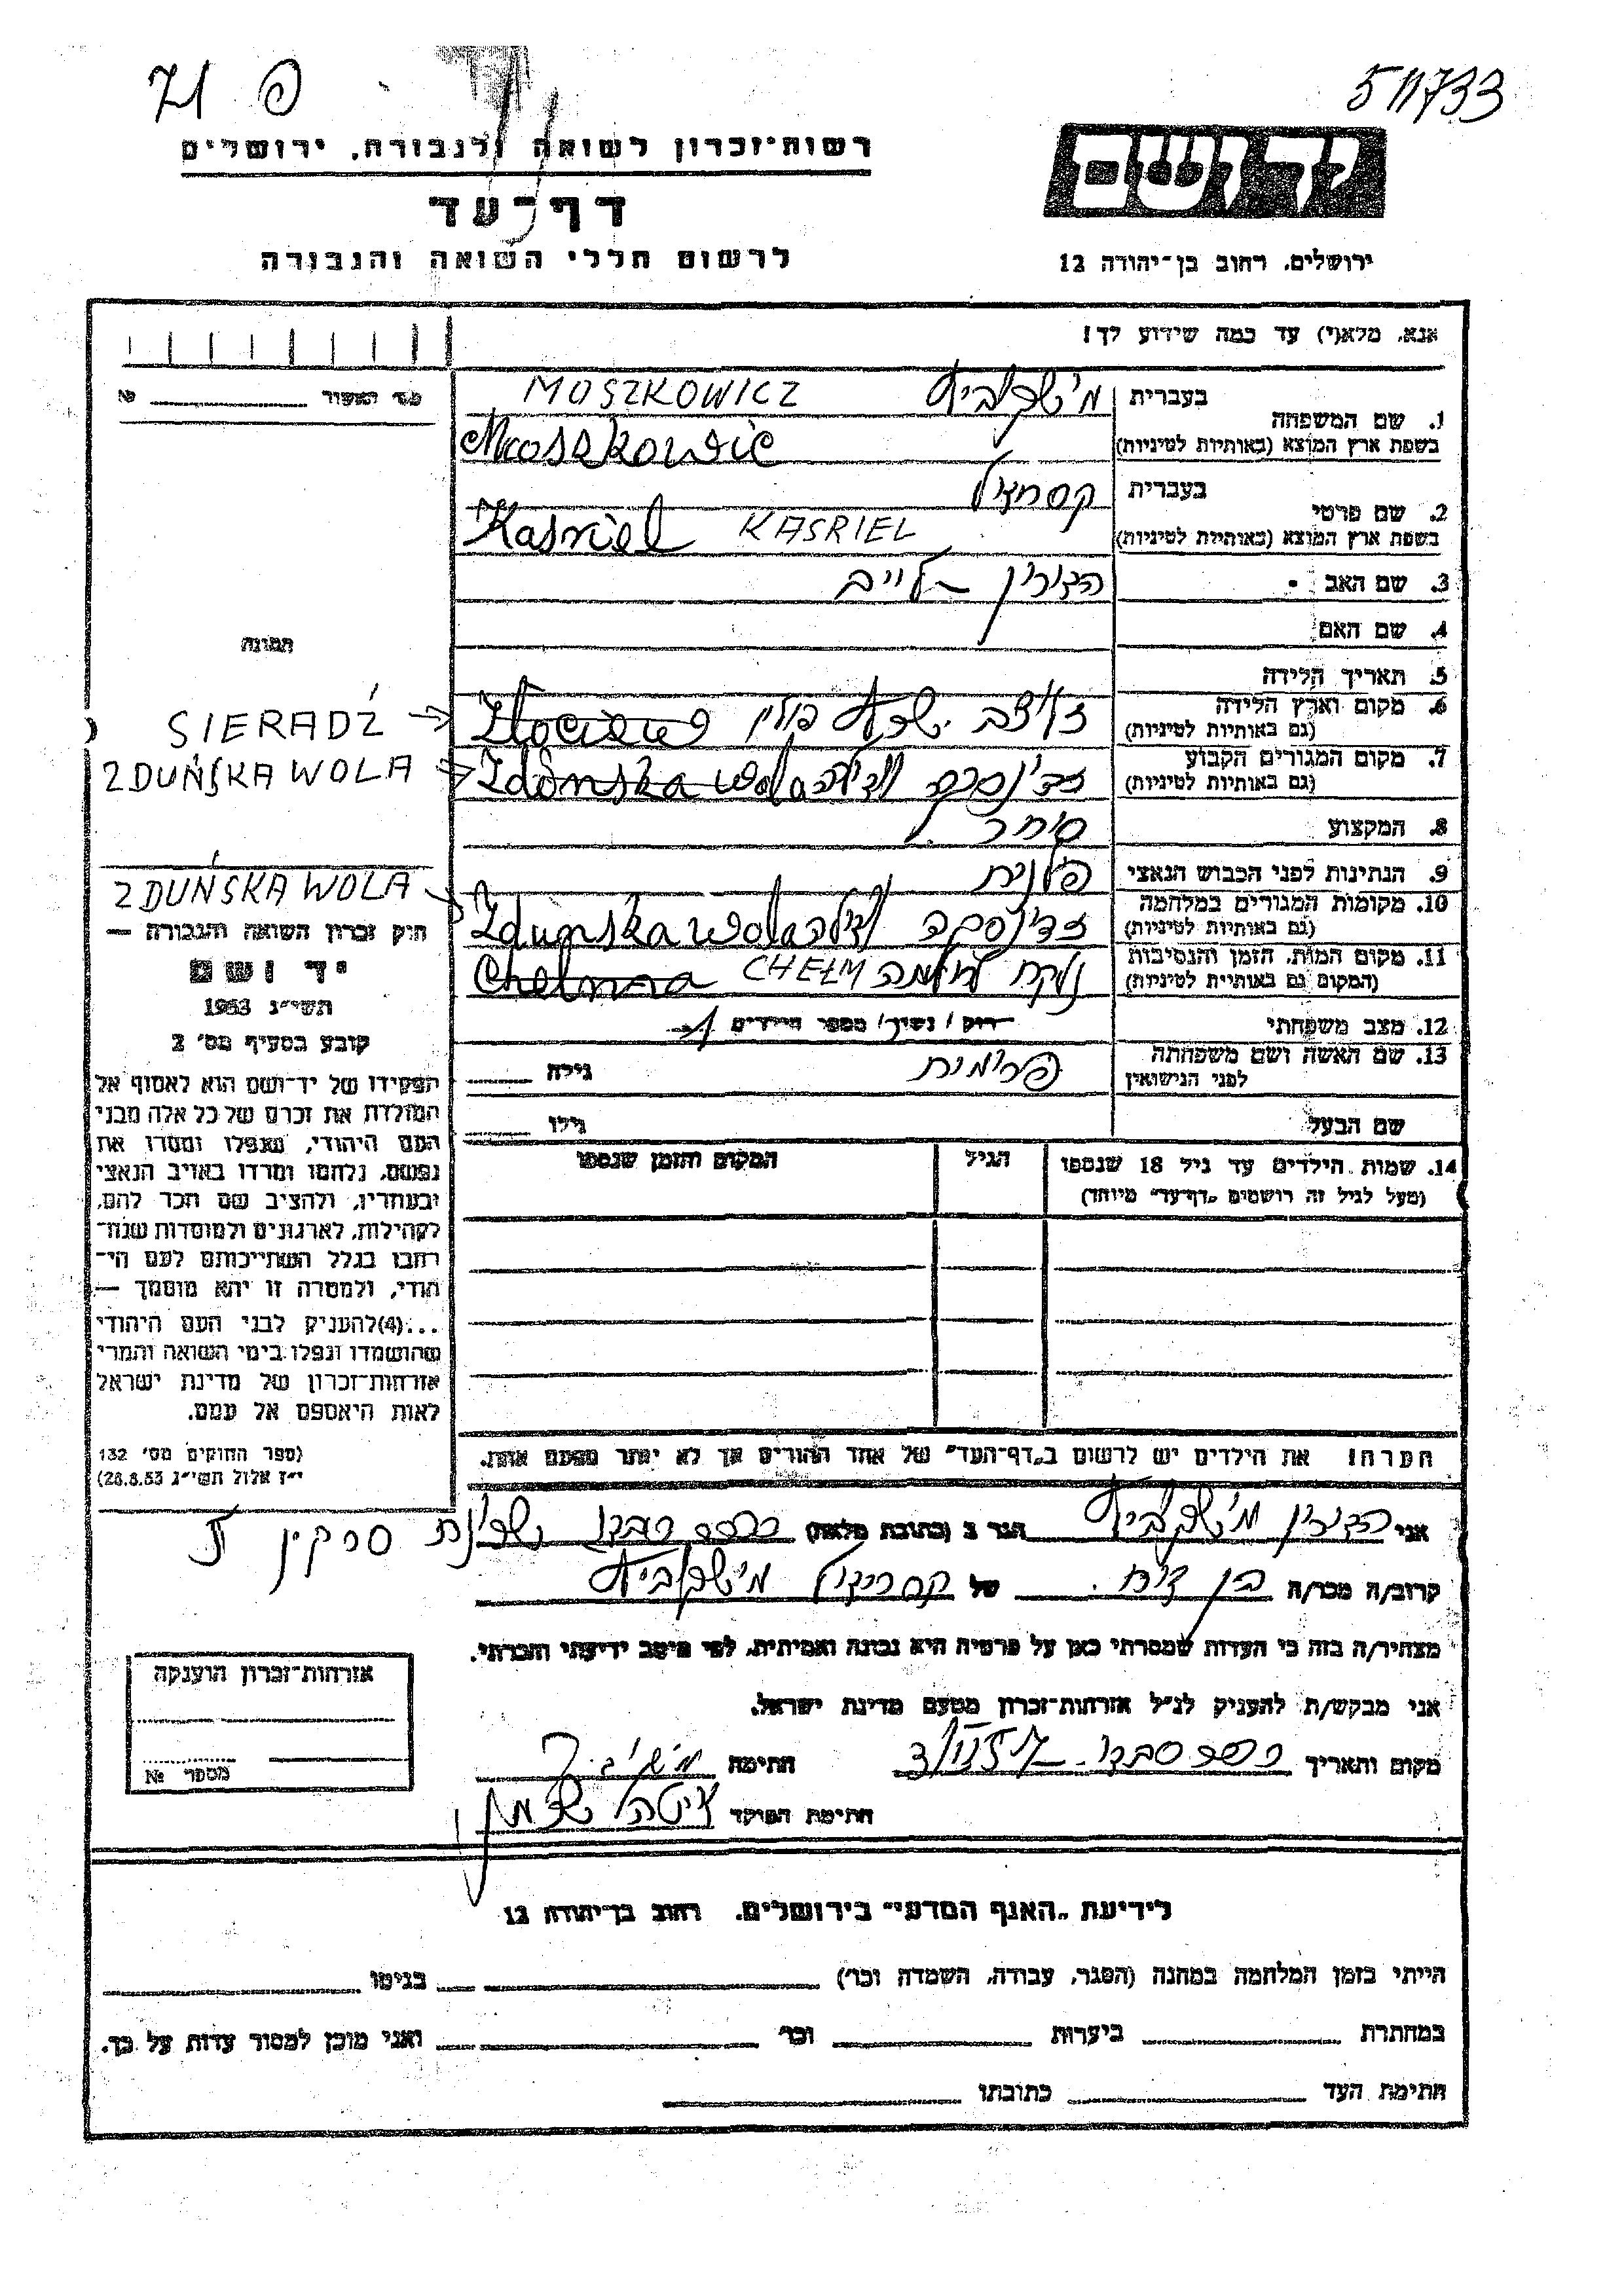 פ 71
511733
רשות־זכרון לשואה ולגבורה, ירושלים
דף־עד
לרשום חללי השואה והגבורה
יד ושם
ירושלים, רחוב בן־יהודה 12
אנא, מלא(י) עד כמה שידוע לך!
מס' האשור № ____
1. שם המשפחה
בעברית מושקוביץ MOSZKOWICZ
בשפת ארץ המוצא (באותיות לטיניות) Moszkowic
2. שם פרטי
בעברית
בשפת ארץ המוצא (באותיות לטיניות) Kasriel KASRIEL
3. שם האב
4. שם האם
תמונה
5. תאריך הלידה
6. מקום וארץ הלידה
(גם באותיות לטיניות)
SIERADŹ →
7. מקום המגורים הקבוע
(גם באותיות לטיניות) Zdonska wola
ZDUŃSKA WOLA →
8. המקצוע סוחר
9. הנתינות לפני הכבוש הנאצי פולנית
10. מקומות המגורים במלחמה
(גם באותיות לטיניות) זדונסקה וולה Zdunska wola
ZDUŃSKA WOLA →
11. מקום המות, הזמן והנסיבות
(המקום גם באותיות לטיניות) נלקח לחלמנה CHEŁM Chelmna
12. מצב משפחתי רווק / נשוי / מספר הילדים
13. שם האשה ושם משפחתה
לפני הנישואין גילה ____
שם הבעל גילו ____
14. שמות הילדים עד גיל 18 שנספו
(מעל לגיל זה רושמים „דף־עד" מיוחד)
הגיל
המקום והזמן שנספו
הערה: את הילדים יש לרשום ב„דף־העד" של אחד ההורים אך לא יותר מפעם אחת.
חוק זכרון השואה והגבורה —
יד ושם
תשי״ג 1953
קובע בסעיף מס' 2
תפקידו של יד־ושם הוא לאסוף אל
המולדת את זכרם של כל אלה מבני
העם היהודי, שנפלו ומסרו את
נפשם, נלחמו ומרדו באויב הנאצי
ובעוזריו, ולהציב שם וזכר להם,
לקהילות, לארגונים ולמוסדות שנח־
רבו בגלל השתייכותם לעם הי־
הודי, ולמטרה זו יהא מוסמך —
...(4)להעניק לבני העם היהודי
שהושמדו ונפלו בימי השואה והמרי
אזרחות־זכרון של מדינת ישראל
לאות היאספם אל עמם.
(ספר החוקים מס' 132
י״ז אלול תשי״ג 28.8.53)
אני מושקוביץ הגר ב (כתובת מלאה) שכונת
קרוב/ה מכר/ה בן דוד של מושקוביץ
מצהיר/ה בזה כי העדות שמסרתי כאן על פרטיה היא נכונה ואמיתית, לפי מיטב ידיעתי והכרתי.
אני מבקש/ת להעניק לנ״ל אזרחות־זכרון מטעם מדינת ישראל.
מקום ותאריך חתימה
חתימת הפוקד
אזרחות־זכרון הוענקה
מספר №
לידיעת „האגף המדעי" בירושלים, רחוב בן־יהודה 12
הייתי בזמן המלחמה במחנה (הסגר, עבודה, השמדה וכו') ____ בגיטו ____
במחתרת ____ ביערות ____ וכו' ____ ואני מוכן למסור עדות על כך.
חתימת העד ____ כתובתו ____